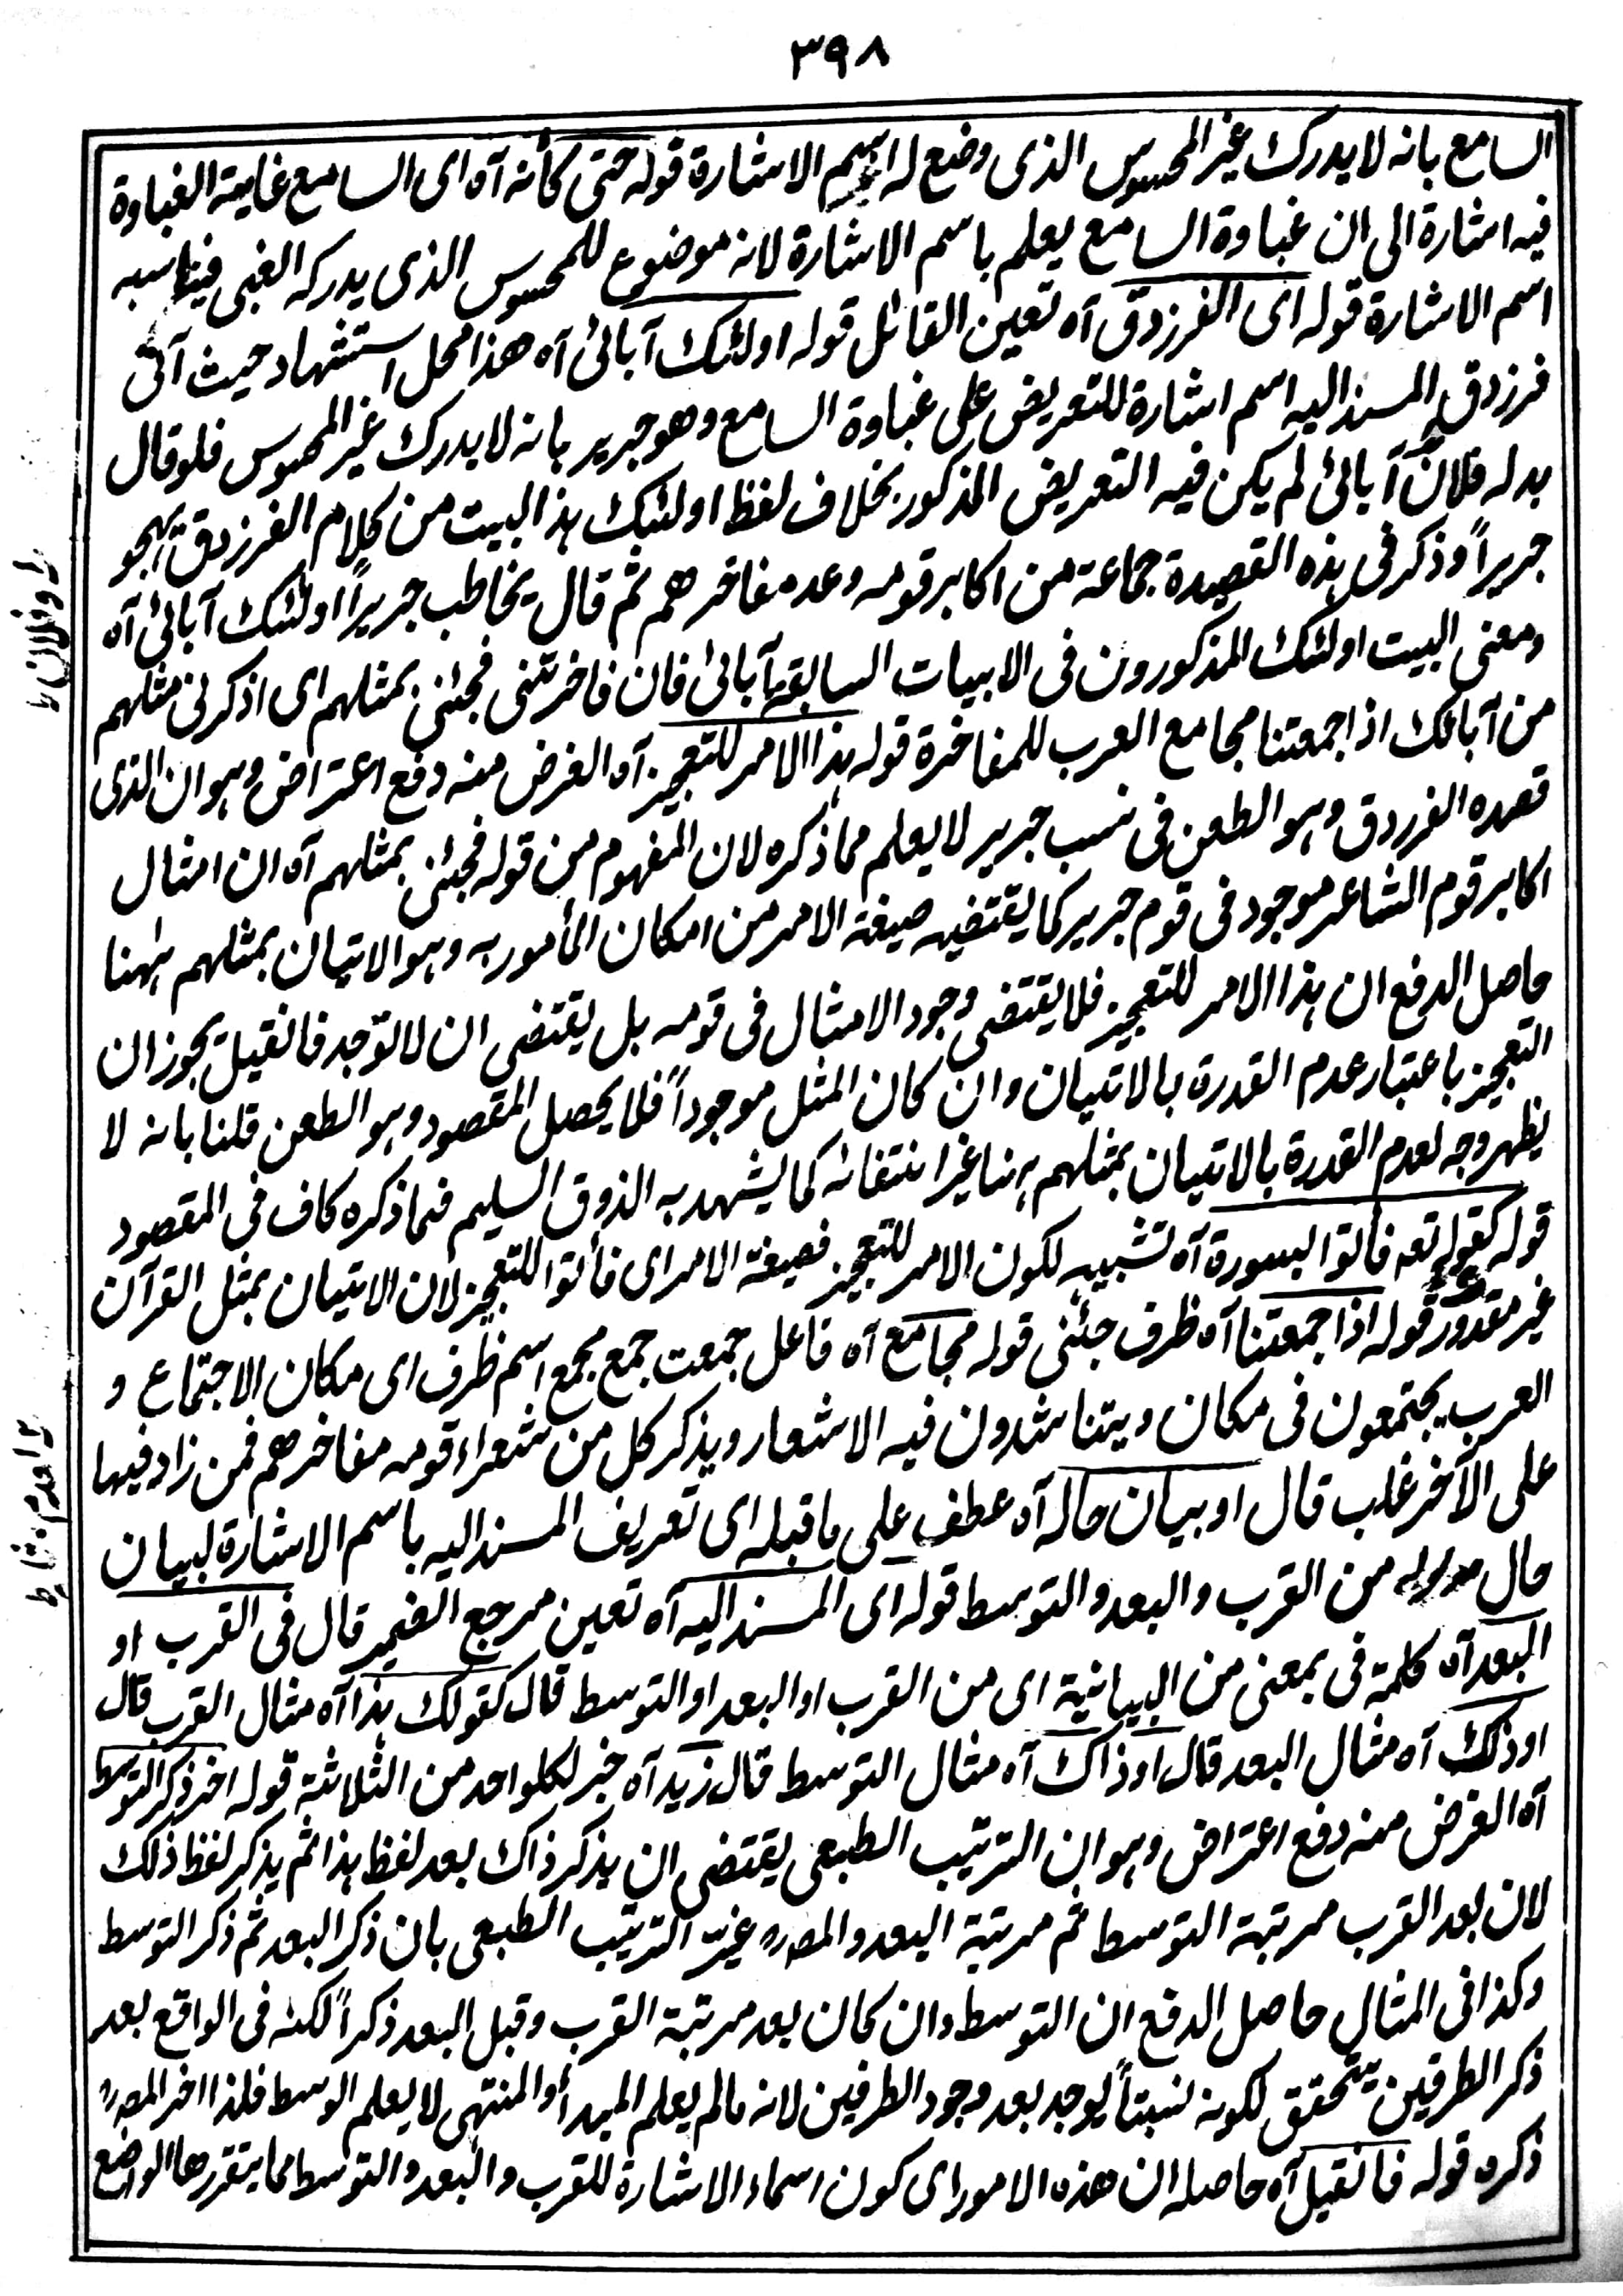 ٣٩٨
السامع بانه لا يدرك غير المحسوس الذى وضع له اسم الاشارة قوله حتى كأنه آه اى السامع غاية الغباوة
فيه اشارة الى ان غباوة السامع يعلم باسم الاشارة لانه موضوع للمحسوس الذى يدركه الغبى فيناسبه
اسم الاشارة قوله اى الفرزدق آه تعين القائل قوله اولئك آبائى آه هذا محل استشهاد حيث آتى
فرزدق المسند اليه اسم اشارة للتعريض على غباوة السامع وهو جرير بانه لا يدرك غير المحسوس فلو قال
بدله فلان آبائى لم يكن فيه التعريض المذكور بخلاف لفظ اولئك هذ البيت من كلام الفرزدق يهجو
جريراً وذكر فى هذه القصيدة جماعة من اكابر قومه وعد مفاخرهم ثم قال يخاطب جريراً اولئك آبائى آه
ومعنى البيت اولئك المذكورون فى الابيات السابقة آبائى فان فاخرتنى فجئنى بمثلهم اى اذكر لى مثلهم
من آبائك اذا جمعتنا مجامع العرب للمفاخرة قوله هذا الامر للتعجيز آه الغرض منه دفع اعتراض وهو ان الذى
قصده الفرزدق وهو الطعن فى نسب جرير لا يعلم مما ذكره لان المفهوم من قوله فجئنى بمثلهم آه ان امثال
اكابر قوم الشاعر موجود فى قوم جرير كما يقتضيه صيغة الامر من امكان المأمور به وهو الاتيان بمثلهم ههنا
حاصل الدفع ان هذا الامر للتعجيز فلا يقتضى وجود الامثال فى قومه بل يقتضى ان لا توجد فانقيل يجوز ان
التعجيز باعتبار عدم القدرة بالاتيان وان كان المثل موجوداً فلا يحصل المقصود وهو الطعن قلنا بانه لا
يظهر وجه لعدم القدرة بالاتيان بمثلهم هنا غير انتفائه كما يشهد به الذوق السليم فما ذكره كاف فى المقصود
قوله كقوله تعه فأتوا بسورة آه تشبيه لكون الامر للتعجيز فصيغة الامر اى فأتوا للتعجيز لان الاتيان بمثل القرآن
غير مقدور قوله اذا جمعتنا آه ظرف جئنى قوله مجامع آه فاعل جمعت جمع مجمع اسم ظرف اى مكان الاجتماع و
العرب يجتمعون فى مكان ويتناشدون فيه الاشعار ويذكر كل من شعراء قومه مفاخرهم فمن زاد فيها
على الآخر غلب قال او بيان حاله آه عطف على ما قبله اى تعريف المسند اليه باسم الاشارة لبيان
حال مدلوله من القرب والبعد والتوسط قوله اى المسند اليه آه تعين مرجع الضمير قال فى القرب او
البعد آه كلمة فى بمعنى من البيانية اى من القرب او البعد او التوسط قال كقولك هذا آه مثال القرب قال
او ذلك آه مثال البعد قال او ذاك آه مثال التوسط قال زيد آه خبر لكلواحد من الثلاثة قوله اخر ذكر التوسط
آه الغرض منه دفع اعتراض وهو ان الترتيب الطبعى يقتضى ان يذكر ذاك بعد لفظ هذا ثم يذكر لفظ ذلك
لان بعد القرب مرتبة التوسط ثم مرتبة البعد والمصره غير الترتيب الطبعى بان ذكر البعد ثم ذكر التوسط
وكذا فى المثال حاصل الدفع ان التوسط وان كان بعد مرتبة القرب وقبل البعد ذكراً لكنه فى الواقع بعد
ذكر الطرفين يتحقق لكونه نسبتاً يوجد بعد وجود الطرفين لانه مالم يعلم المبدأ والمنتهى لا يعلم الوسط فلذا اخر المصره
ذكره قوله فانقيل آه حاصله ان هذه الامور اى كون اسماء الاشارة للقرب والبعد والتوسط مما يتقررها الواضع